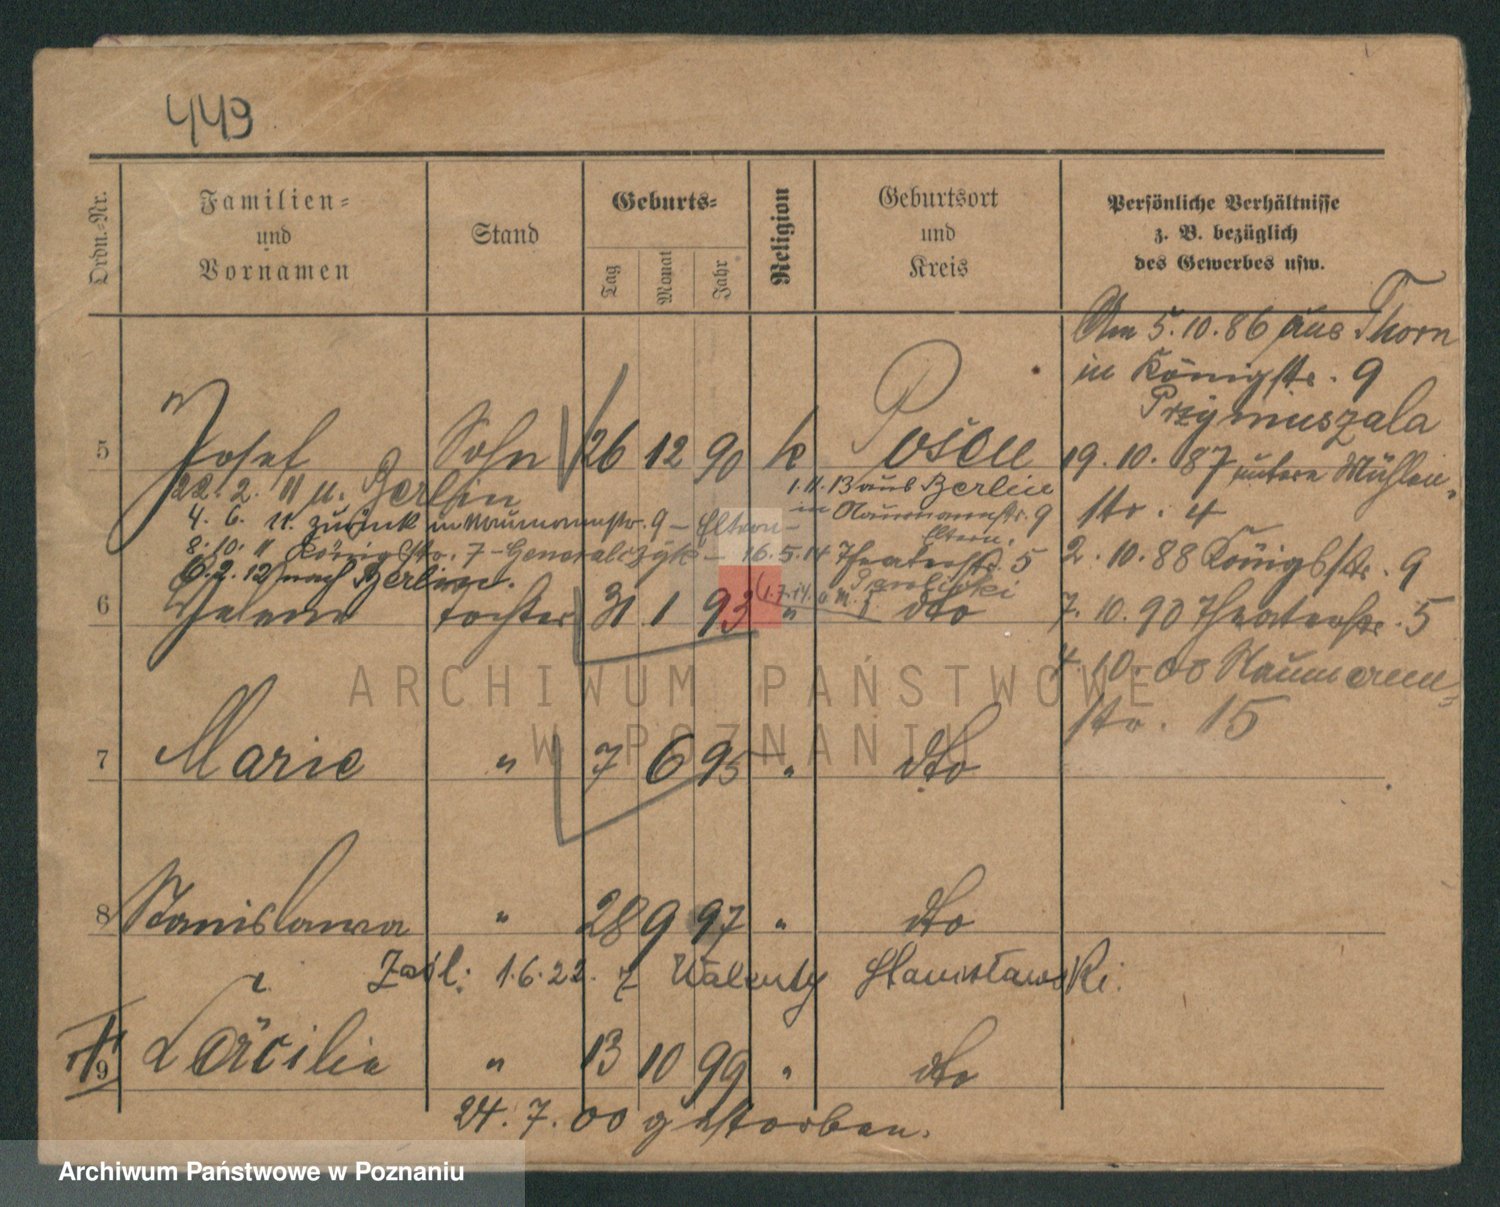 449
Ordn.-Nr.
Familien-
und
Vornamen
Stand
Geburts-
Tag
Monat
Jahr
Religion
Geburtsort
und
Kreis
Persönliche Verhältnisse
z. B. bezüglich
des Gewerbes usw.
Am 5.10.86 aus Thorn
in Königstr. 9
Przymuszala
5 Josef Sohn 26 12 90 k Posen
19.10.87 untere Mühlen-
str. 4
22.2.11 n. Berlin
1.11.13 aus Berlin
4.6.11. zurück in Naumannstr. 9 – Eltern –
in Naumannstr. 9
Eltern.
8.10.11 Königstr. 7 – Generalczyk – 16.5.14 Theaterstr. 5
2.10.88 Königstr. 9
6.2.12 nach Berlin.
(1.7.14.
6 Helene Tochter 31 1 93 " dto
7.10.90 Theaterstr. 5
4.10.00 Naumann-
str. 15
7 Marie " 7 6 95 " dto
8 Stanislawa " 28 9 97 " dto
Zaśl: 1.6.22. z Walenty Stanisławski.
9 Cäcilie " 13 10 99 " dto
24.7.00 gestorben.
ARCHIWUM PAŃSTWOWE
W POZNANIU
Archiwum Państwowe w Poznaniu